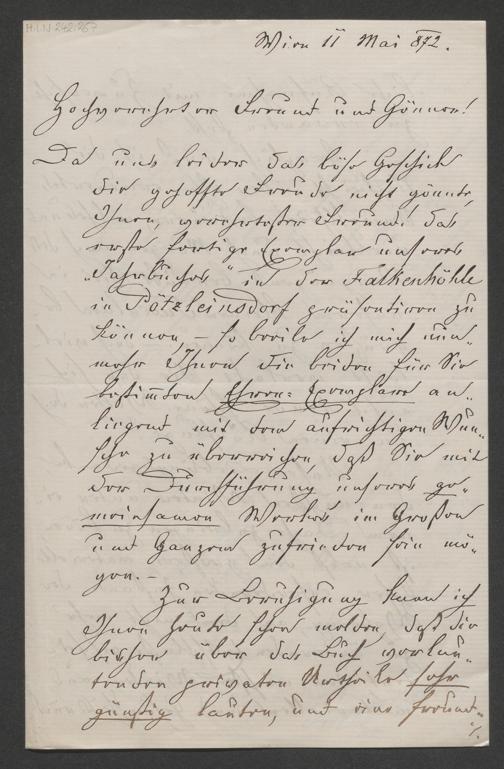 H.I.N. 242.267
Wien 11 Mai 872.
Hochverehrter Freund und Gönner!
Da uns leider das böse Geschick
die gehoffte Freude nicht gönnte,
Ihnen, verehrtester Freund! das
erste fertige Exemplar unseres
„Jahrbuches" in der Falkenhöhle
in Pötzleinsdorf präsentiren zu
können, – so beeile ich mich nun-
mehr Ihnen die beiden für Sie
bestimmten Ehren-Exemplare an-
liegend mit dem aufrichtigen Wun-
sche zu überreichen, daß Sie mit
der Durchführung unseres ge-
meinsamen Werkes im Großen
und Ganzen zufrieden sein mö-
gen. –
Zur Beruhigung kann ich
Ihnen heute schon melden, daß die
bisher über das Buch verlau-
tenden privaten Urtheile sehr
günstig lauten, und eine freund-